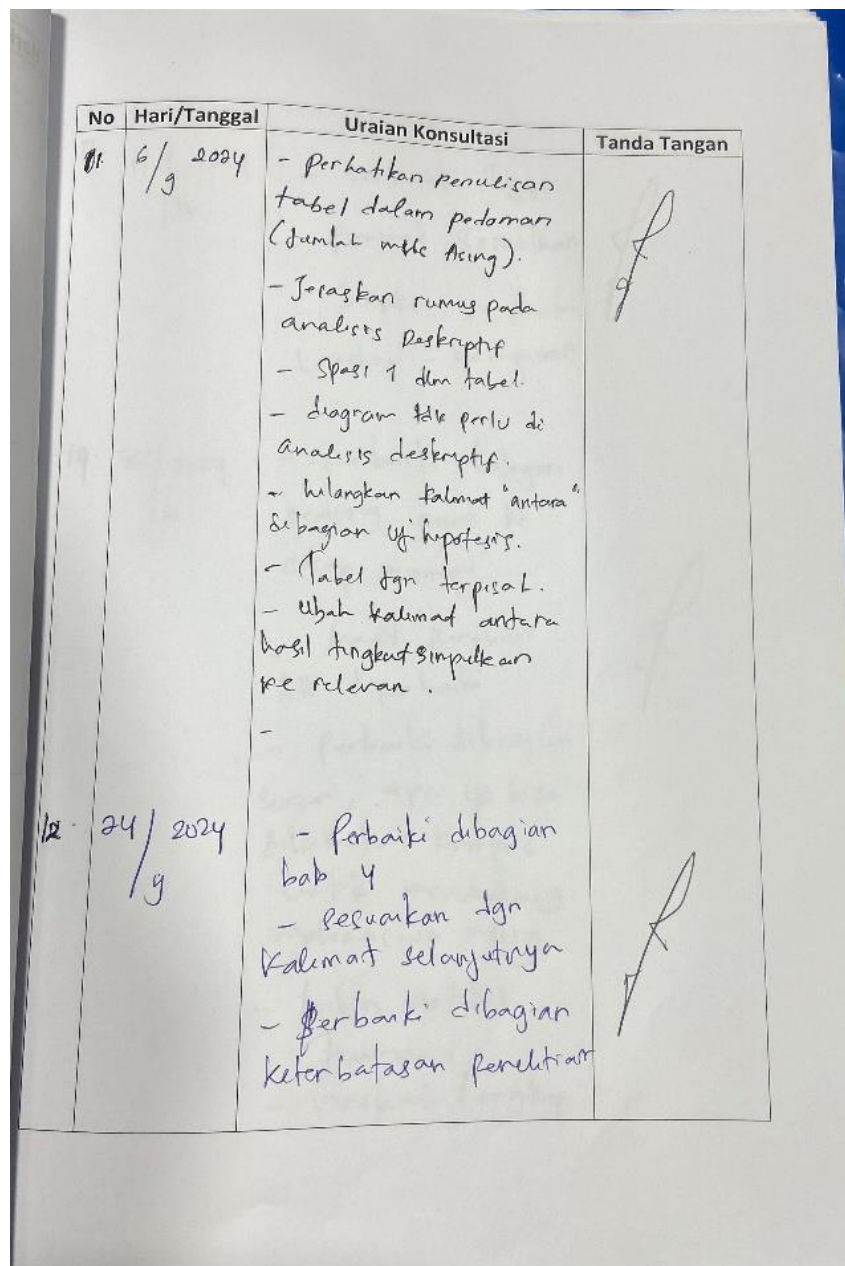 No Hari/Tanggal Uraian Konsultasi Tanda Tangan
11. 6/9 2024 - Perhatikan penulisan
tabel dalam pedoman
(Jumlah Asing).
- Jelaskan rumus pada
analisis Deskriptif
- Spasi 1 dlm tabel.
- diagram tdk perlu di
analisis deskriptif.
- hilangkan kalimat "antara"
dibagian uji hipotesis.
- Tabel dgn terpisah.
- Ubah kalimat antara
hasil tingkat simpulkan
ke relevan.
-
12. 24/9 2024 - Perbaiki dibagian
bab 4
- Sesuaikan dgn
kalimat selanjutnya
- Perbaiki dibagian
keterbatasan penelitian